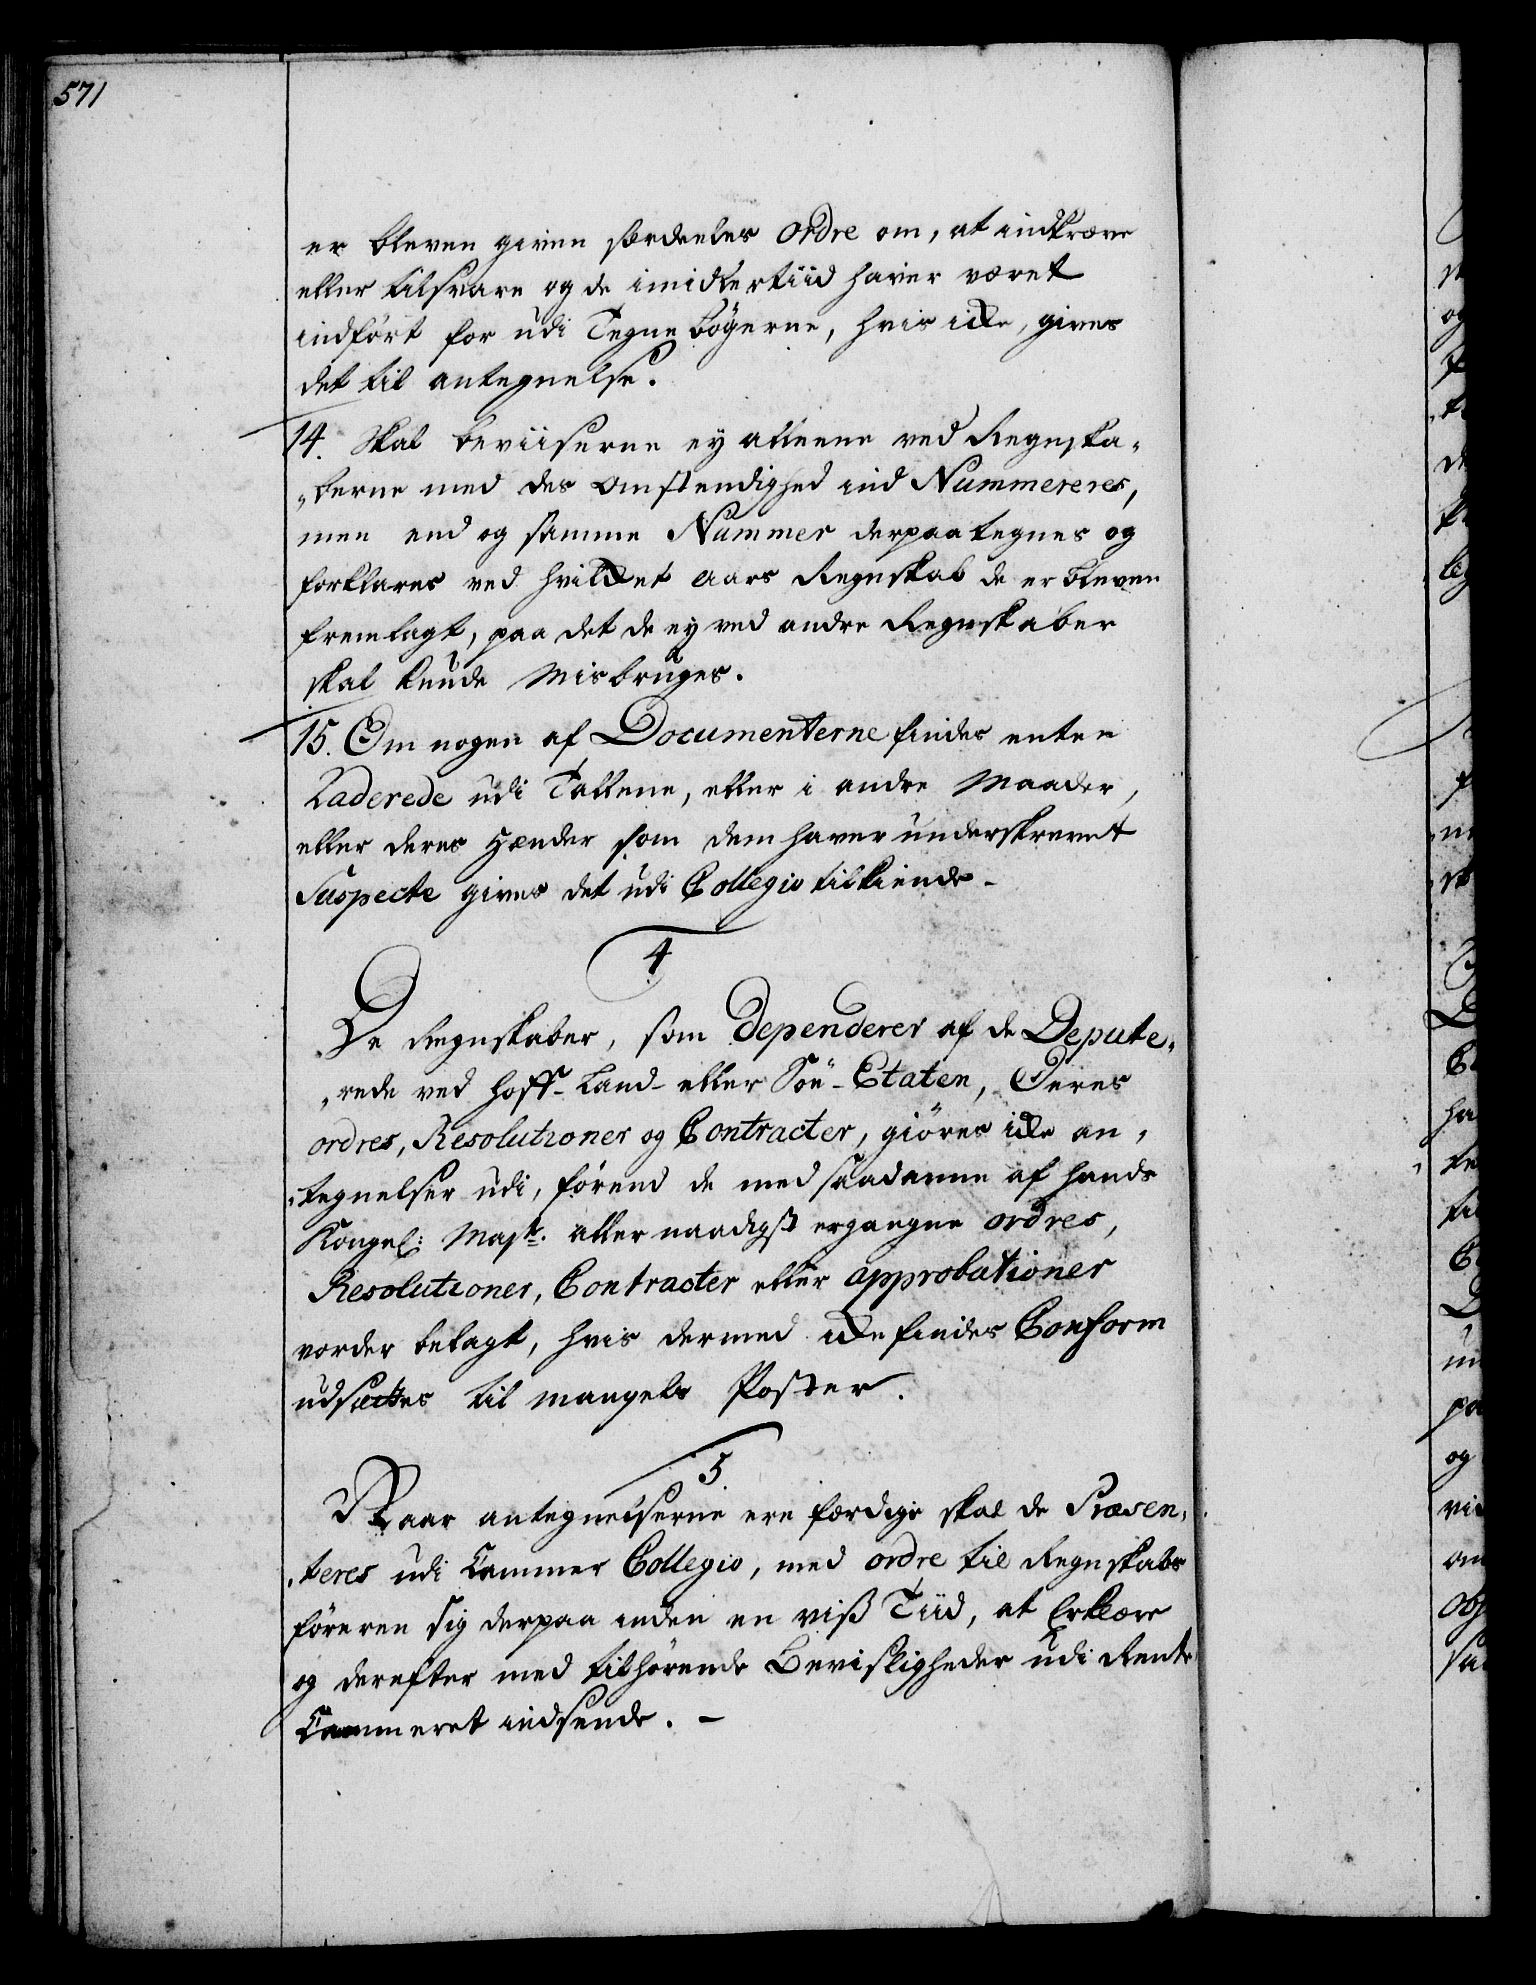 571
er bleven given særdeles Ordre om, at indkræve
eller tilsvare og de imidlertiid haver været
indført for udi Tegnebögerne, hvis icke, gives
det til antegnelse.
14. Skal beviiserne ey alleene ved Regnska-
„berne med des omstendighed ind Nummereres,
men end og samme Nummer derpaa tegnes og
forklares ved hvilcket aars Regnskab de er bleven
fremlagt, paa det de ey ved andre Regnskaber
skal kunde misbruges.
15. Om nogen af Documenterne findes enten
Raderede udi Tallene, eller i andre Maader,
eller deres Hænder som dem haver underskrevet
Suspecte gives det udi Collegio tilkiende –
4
De Regnskaber, som Dependerer af de Depute-
„rede ved Hoff- Land- eller Söe-Etaten, Deres
ordres, Resolutioner og Contracter, giöres icke an-
„tegnelser udi, förend de med saadanne af Hands
Kongel: Mayt. aller naadigst ergangne ordres,
Resolutioner, Contracter eller approbationer
vorder belagt, hvis dermed icke findes Conform
udsættes til mangels Poster.
5
Naar antegnelserne ere færdige skal de Præsen-
„teres udi Cammer Collegio, med ordre til Regnskabs
föreren sig derpaa inden en viß Tiid, at Erklære
og derefter med tilhörende Bevisligheder udi Rente
Cammeret indsende. –